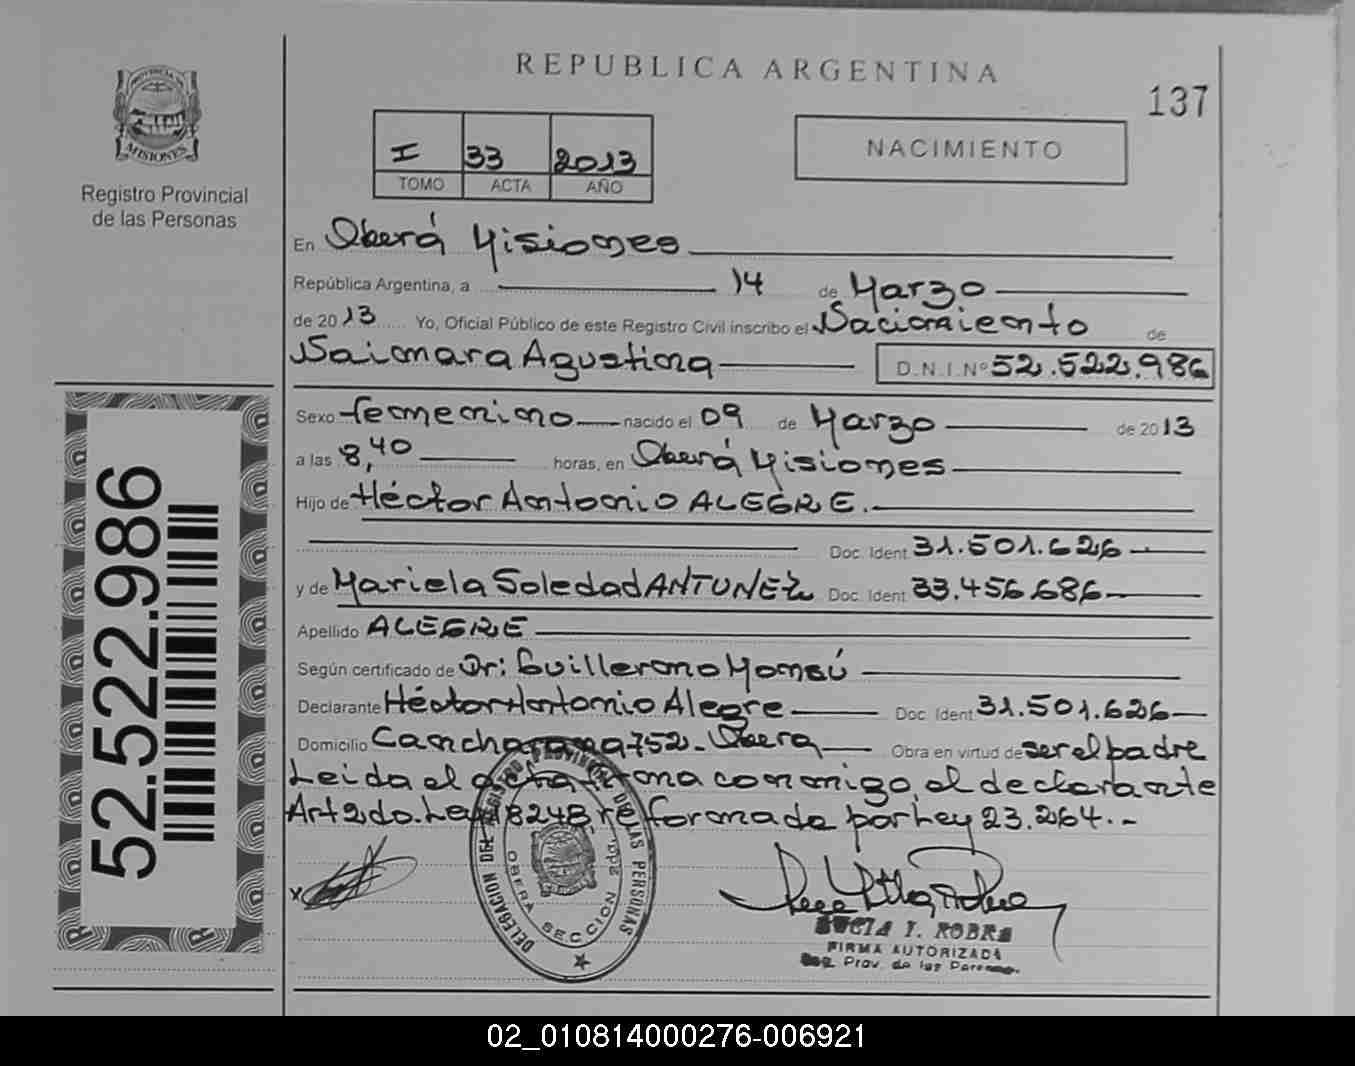 REPUBLICA ARGENTINA
137
PROVINCIA DE
MISIONES
Registro Provincial
de las Personas
I 33 2013
TOMO ACTA AÑO
NACIMIENTO
En Oberá Misiones
República Argentina, a 14 de Marzo
de 2013 Yo, Oficial Público de este Registro Civil inscribo el Nacimiento de
Naimara Agustina D.N.I.Nº 52.522.986
Sexo femenino nacido el 09 de Marzo de 2013
a las 8,40 horas, en Oberá Misiones
Hijo de Héctor Antonio ALEGRE.
Doc. Ident. 31.501.626
y de Mariela Soledad ANTUNEZ Doc. Ident. 33.456.686
Apellido ALEGRE
Según certificado de Dr: Guillermo Monsú
Declarante Héctor Antonio Alegre Doc. Ident. 31.501.626
Domicilio 752 - Obera Obra en virtud de ser el padre
Leida el acta firma conmigo, el declarante
Art 2do. Ley 18248 reformada por Ley 23.264.-
x
DELEGACION DEL REGISTRO PROVINCIAL DE LAS PERSONAS
OBERA SECCION 2da.
LUCIA T. ROBRA
FIRMA AUTORIZADA
Reg. Prov. de las Personas
52.522.986
02_010814000276-006921